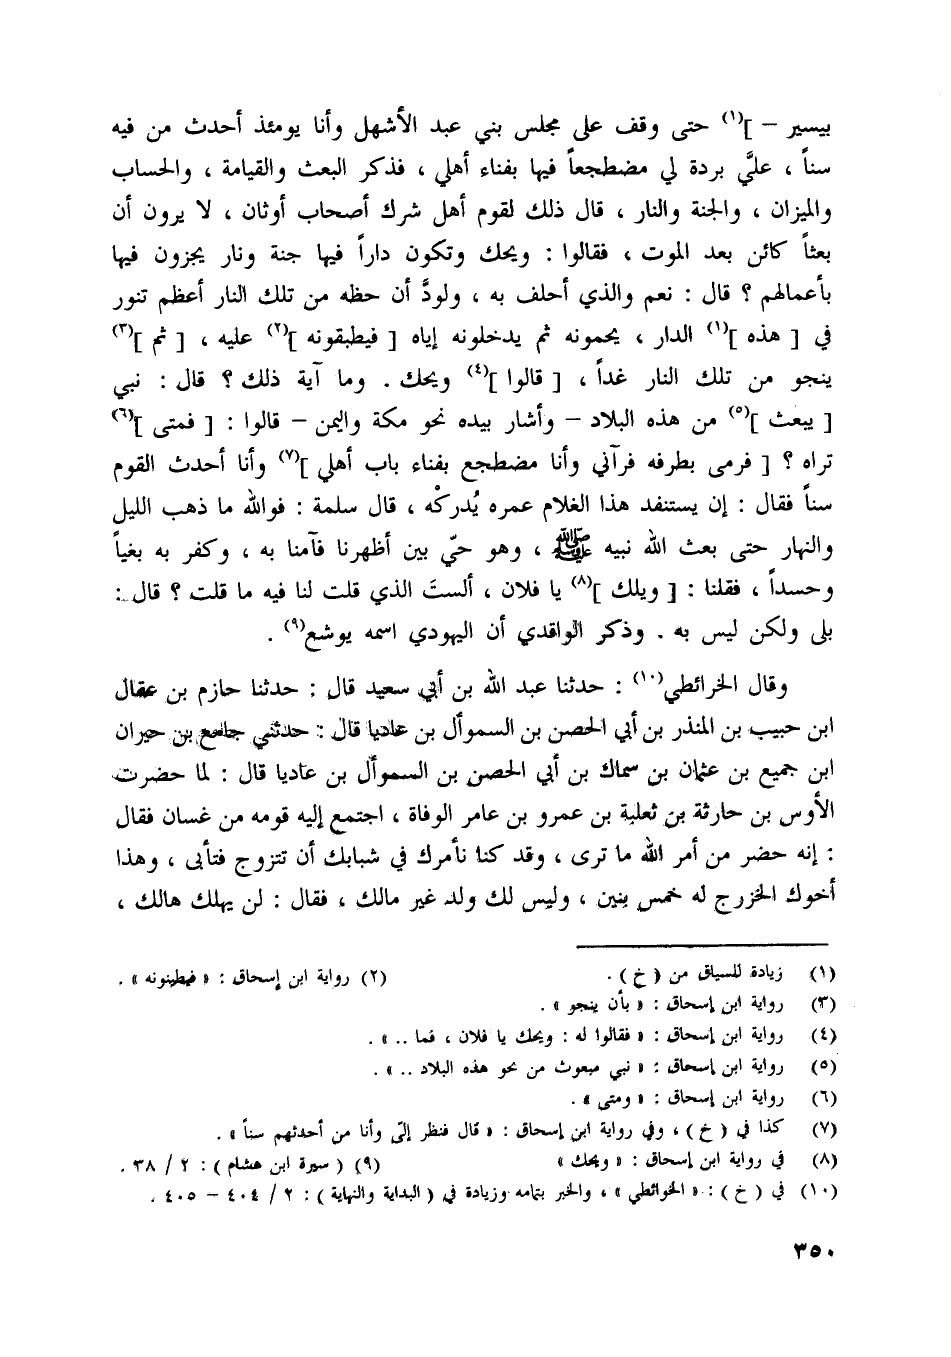 بيسير – ](١) حتى وقف على مجلس بني عبد الأشهل وأنا يومئذ أحدث من فيه
سناً ، عليَّ بردة لي مضطجعاً فيها بفناء أهلي ، فذكر البعث والقيامة ، والحساب
والميزان ، والجنة والنار ، قال ذلك لقوم أهل شرك أصحاب أوثان ، لا يرون أن
بعثاً كائن بعد الموت ، فقالوا : ويحك وتكون داراً فيها جنة ونار يجزون فيها
بأعمالهم ؟ قال : نعم والذي أحلف به ، ولودَّ أن حظه من تلك النار أعظم تنور
في [ هذه ](١) الدار ، يحمونه ثم يدخلونه إياه [ فيطبقونه ](٢) عليه ، [ ثم ](٣)
ينجو من تلك النار غداً ، [ قالوا ](٤) ويحك . وما آية ذلك ؟ قال : نبي
[ يبعث ](٥) من هذه البلاد – وأشار بيده نحو مكة واليمن – قالوا : [ فمتى ](٦)
تراه ؟ [ فرمى بطرفه فرآني وأنا مضطجع بفناء باب أهلي ](٧) وأنا أحدث القوم
سناً فقال : إن يستنفد هذا الغلام عمره يُدركْه ، قال سلمة : فوالله ما ذهب الليل
والنهار حتى بعث الله نبيه ﷺ ، وهو حيّ بين أظهرنا فآمنا به ، وكفر به بغياً
وحسداً ، فقلنا : [ ويلك ](٨) يا فلان ، ألستَ الذي قلت لنا فيه ما قلت ؟ قال :
بلى ولكن ليس به . وذكر الواقدي أن اليهودي اسمه يوشع(٩) .
وقال الخرائطي(١٠) : حدثنا عبد الله بن أبي سعيد قال : حدثنا حازم بن عقال
ابن حبيب بن المنذر بن أبي الحصن بن السموأل بن عاديا قال : حدثني جامع بن حيران
ابن جميع بن عثمان بن سماك بن أبي الحصن بن السموأل بن عاديا قال : لما حضرت
الأوس بن حارثة بن ثعلبة بن عمرو بن عامر الوفاة ، اجتمع إليه قومه من غسان فقال
: إنه حضر من أمر الله ما ترى ، وقد كنا نأمرك في شبابك أن تتزوج فتأبى ، وهذا
أخوك الخزرج له خمس بنين ، وليس لك ولد غير مالك ، فقال : لن يهلك هالك ،
(١) زيادة للسياق من ( خ ) . (٢) رواية ابن إسحاق : « فيطينونه » .
(٣) رواية ابن إسحاق : « بأن ينجو » .
(٤) رواية ابن إسحاق : « فقالوا له : ويحك يا فلان ، فما .. » .
(٥) رواية ابن إسحاق : « نبي مبعوث من نحو هذه البلاد .. » .
(٦) رواية ابن إسحاق : « ومتى » .
(٧) كذا في ( خ ) ، وفي رواية ابن إسحاق : « قال فنظر إليّ وأنا من أحدثهم سناً » .
(٨) في رواية ابن إسحاق : « ويحك » (٩) ( سيرة ابن هشام ) : ٢ / ٣٨ .
(١٠) في ( خ ) : « الخوائطي » ، والخبر بتمامه وزيادة في ( البداية والنهاية ) : ٢ / ٤٠٤ – ٤٠٥ .
٣٥٠